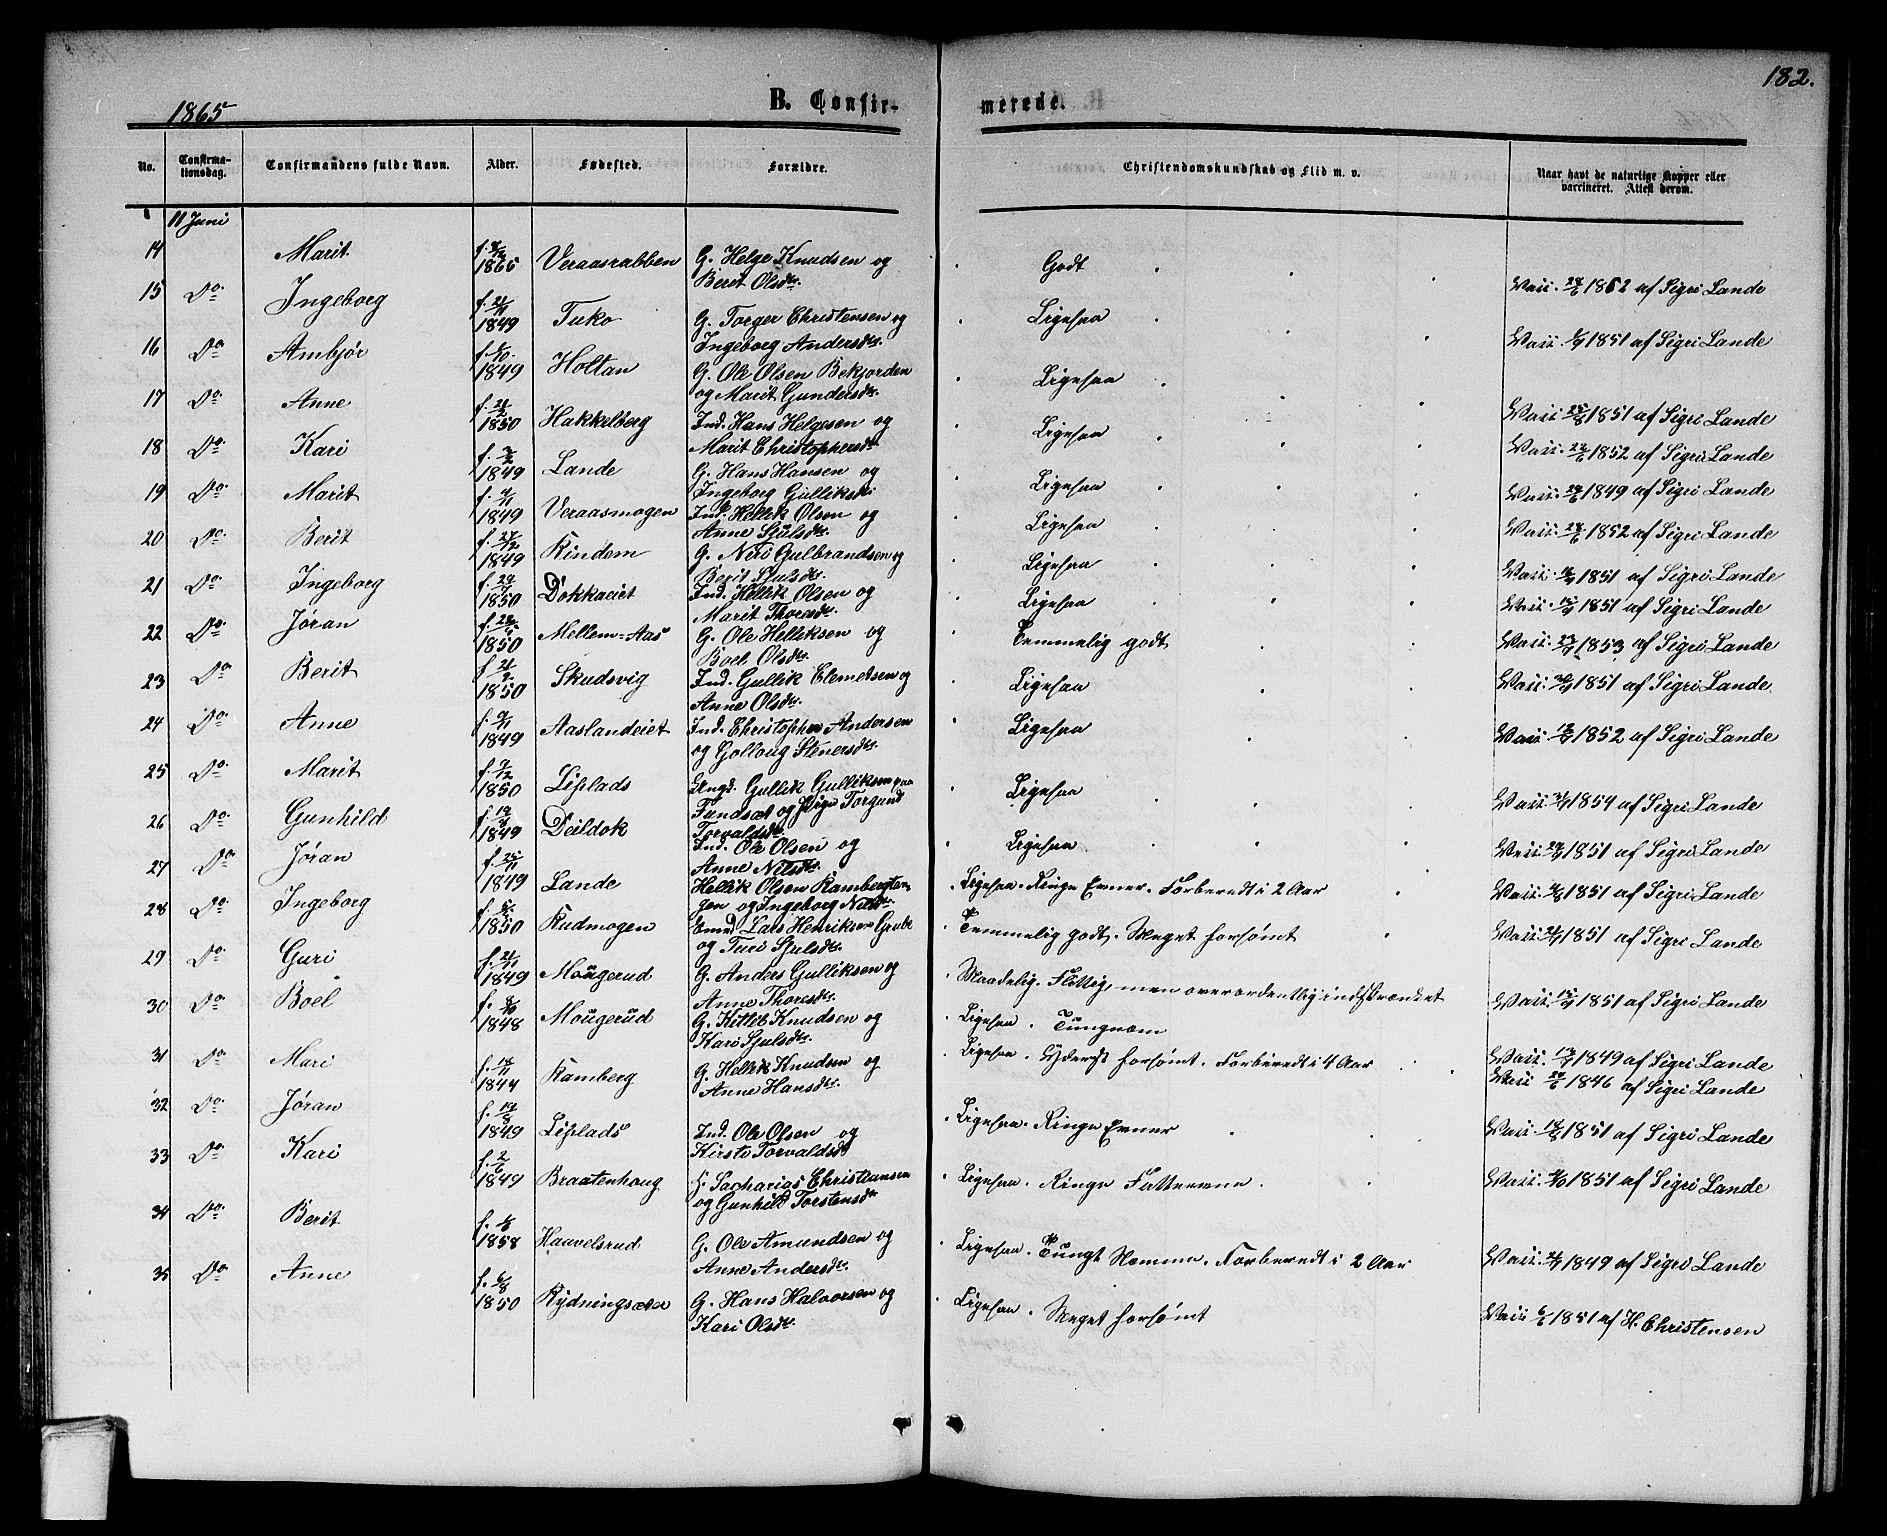 182.
1865
B. Confir-
merede.
No.
Confirma-
tionsdag.
Confirmandens fulde Navn.
Alder.
Fødested.
Forældre.
Christendomskundskab og Flid m. v.
Naar havt de naturlige Kopper eller
vaccineret. Attest derom.
11 Juni
14 Marit f. 1865 Veraasrabben G. Helge Knudsen og
Berit Olsdtr. Godt Vaii. 1852 af Sigri Lande
15 Do. Ingeborg f. 1849 Tuko G. Torger Christensen og
Ingeborg Andersdtr. Ligesaa Vaii. 1851 af Sigri Lande
16 Do Ambjør f. 1849 Holtan G. Ole Olsen Bekjorden
og Marit Gundersdtr. Ligesaa
17 Do. Anne f. 21/2 1850 Hakkelberg Ind. Hans Helgesen og
Marit Christophersdtr Ligesaa Vaii. 1851 af Sigri Lande
18 Do. Kari f. 1849 Lande G. Hans Hansen og
Ingeborg Gulliksdtr Ligesaa Vaii. 1852 af Sigri Lande
19 Do. Marit f. 1849 Veraasmogen Ind. Hellik Olsen og
Anne Sjulsdtr. Ligesaa Vaii. 1849 af Sigri Lande
20 Do. Berit f. 1849 Kindem G. Nils Gulbrandsen og
Berit Sjulsdtr. Ligesaa Vaii. 1852 af Sigri Lande
21 Do. Ingeborg f. 1850 Dokkaeiet Ind. Hellik Olsen og
Marit Thoresdtr. Ligesaa Vaii. 1851 af Sigri Lande
22 Do. Jøran f. 1850 Mellem-Aas G. Ole Helliksen og
Boel Olsdtr. Temmelig godt Vaii. 1851 af Sigri Lande
23 Do Berit f. 1850 Skudsvig Ind. Gullik Clemetsen og
Anne Olsdtr. Ligesaa Vaii. 1853 af Sigri Lande
24 Do. Anne f. 1849 Aaslandeiet Ind. Christopher Andersen
og Golloug Stenersdtr. Ligesaa Vaii. 1851 af Sigri Lande
25 Do. Marit f. 1850 Liplads Ungk. Gullik Gulliksen paa
Fundsæt og Pige Torgund
Torvaldsdtr Ligesaa Vaii. 1852 af Sigri Lande
26 Do. Gunhild f. 1849 Deildok Ind. Ole Olsen og
Anne Nilsdtr. Ligesaa Vaii. 1854 af Sigri Lande
27 Do Jøran f. 25/11 1849 Lande Hellik Olsen Rambergten-
gen og Ingeborg Nilsdtr. Ligesaa. Ringe Evner. Forberedt i 2 Aar Vaii. 1851 af Sigri Lande
28 Do. Ingeborg f. 1850 Rudmogen Lars Henriksen Grube
og Turi Sjulsdtr. Temmelig godt. Meget forsømt Vaii. 1851 af Sigri Lande
29 Do. Guri f. 21/11 1849 Mougerud G. Anders Gulliksen og
Anne Thoresdtr. Maadelig. Flittig, men overordentlig indskrænket Vaii. 1851 af Sigri Lande
30 Do. Boel f. 8/10 1848 Mougerud G. Kittil Knudsen og
Kari Sjulsdtr. Ligesaa. Tungnæm Vaii. 1851 af Sigri Lande
31 Do. Mari f. 1844 Ramberg G. Hellik Knudsen og
Anne Hansdtr. Ligesaa. Yderst forsømt. Forberedt i 4 Aar Vaii. 1849 af Sigri Lande
Vaii 1846 af Sigri Lande
32 Do. Jøran f. 1849 Liplads Ind. Ole Olsen og
Kirsti Torvaldsd Ligesaa. Ringe Evner Vaii. 1851 af Sigri Lande
33 Do. Kari f. 2/6 1849 Braatenhaug Sacharias Christiansen
og Gunhild Torstensdtr Ligesaa. Ringe Fatteevne. Vaii. 1851 af Sigri Lande
34 Do. Berit f. 1858 Haavelsrud G. Ole Amundsen og
Anne Andersdtr. Ligesaa. Tungt Nemme. Forberedt i 2 Aar Vaii. 1849 af Sigri Lande
35 Do Anne f. 6/8 1850 Rydningsæter G. Hans Halvorsen og
Kari Olsdtr. Ligesaa. Meget forsømt Vaii 1851 af H. Christensen